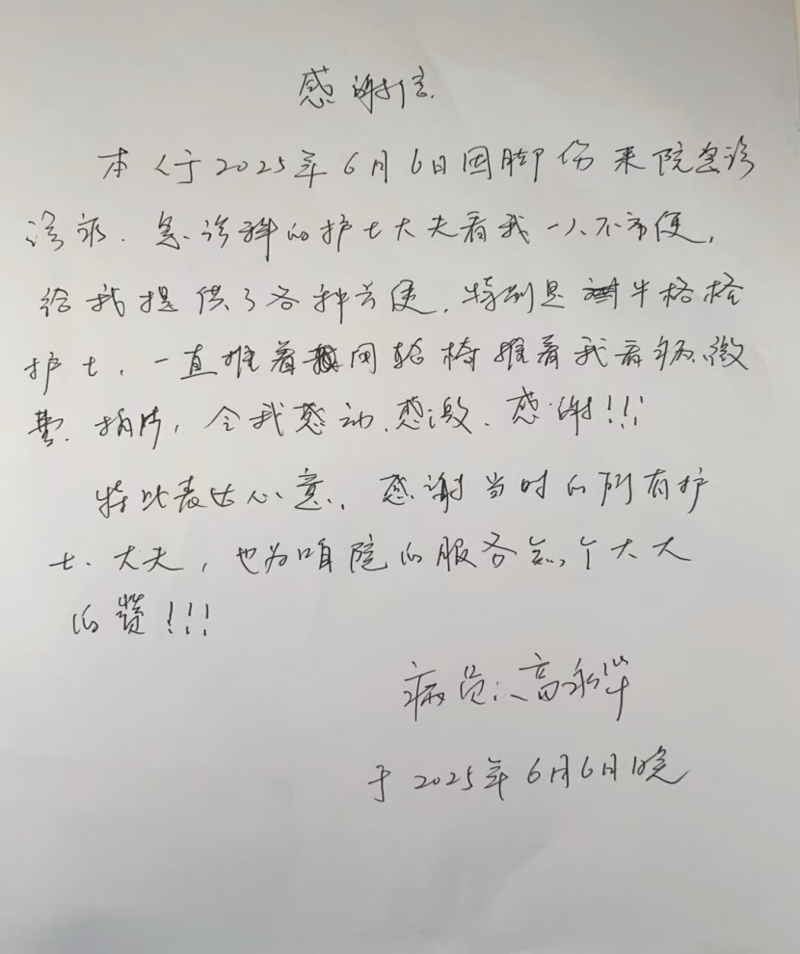 感谢信
本人于2025年6月6日因脚伤来院急诊
诊疗.急诊科的护士大夫看我一人不方便,
给我提供了各种方便.特别是牛格格
护士,一直推着用轮椅推着我看病.缴
费.拍片,令我感动.感激.感谢!!!
特此表达心意.感谢当时的所有护
士.大夫,也为咱院的服务点个大大
的赞!!!
病员:高永华
于2025年6月6日晚